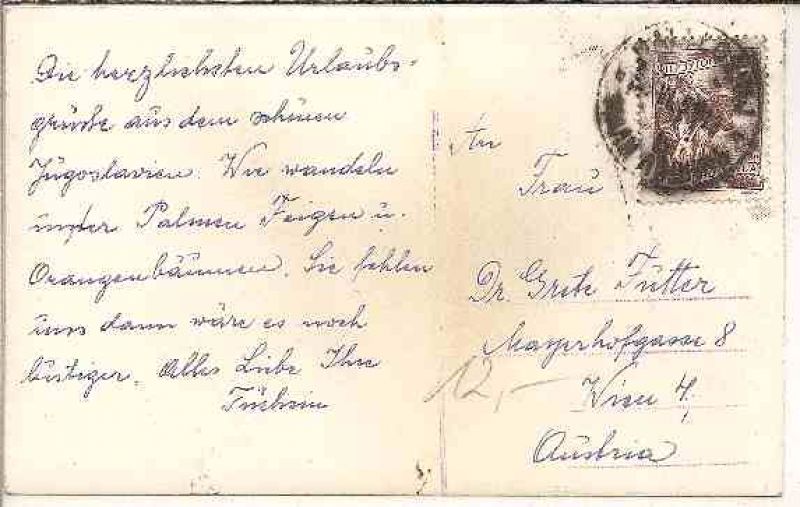 Die herzlichsten Urlaubs-
grüße aus dem schönen
Jugoslavien. Wir wandeln
unter Palmen Feigen u.
Orangenbäumen. Sie fehlen
uns dann wäre es noch
lustiger. Alles Liebe Ihre
An
Frau
Dr. Grete Fütter
Mayerhofgasse 8
Wien 4,
Austria
12,-